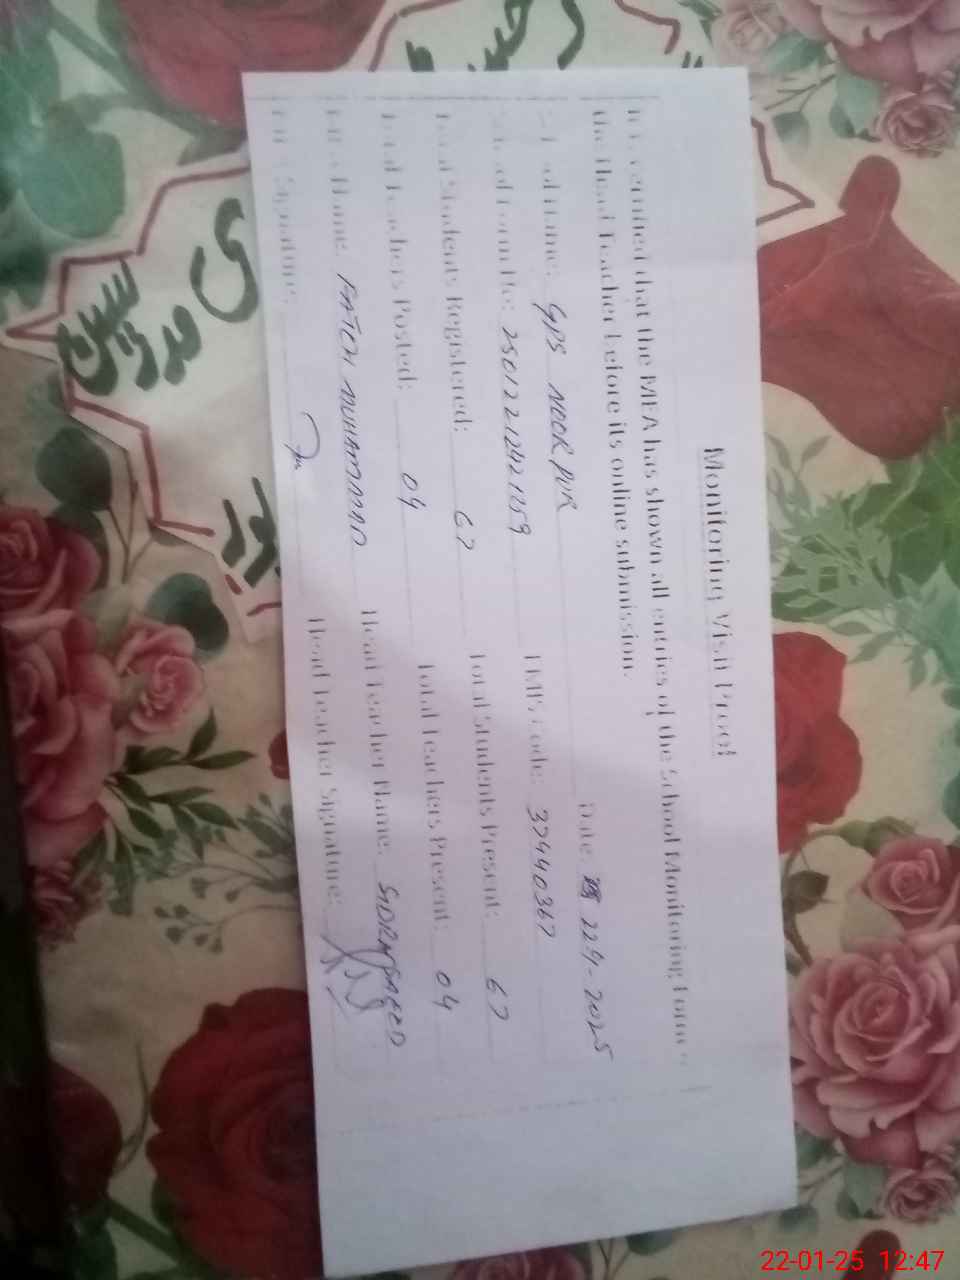 Monitoring Visit Proof
It is certified that the MEA has shown all entries of the School Monitoring Form
the Head Teacher before its online submission.
School Name: GPS NOOR PUR Date: 22-1-2025
School Form No: EMIS Code: 37440367
Total Students Registered: 67 Total Students Present: 67
Total Teachers Posted: 04 Total Teachers Present: 04
MEA Name: FATEH MUHAMMAD Head Teacher Name: SIDRA SAEED
MEA Signature: Head Teacher Signature:
22-01-25 12:47